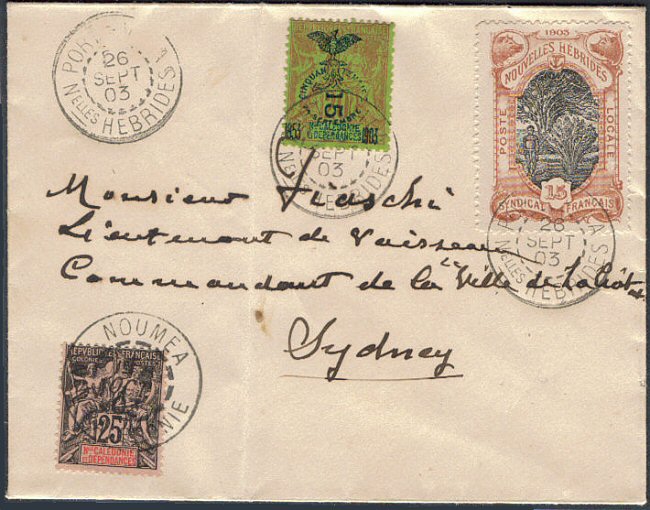 26
SEPT
03
Nelles HEBRIDES
15
1853
1903
Nlle CALEDONIE
DEPENDANCES
SEPT
03
HEBRIDES
1903
NOUVELLES HÉBRIDES
POSTE
LOCALE
15
SYNDICAT FRANÇAIS
26
SEPT
03
Nelles HEBRIDES
Monsieur
Lieutenant de Vaisseau
Commandant de la Ville de la
Sydney
NOUMEA
REPUBLIQUE FRANÇAISE
COLONIES POSTES
25
Nlle CALEDONIE
ET DEPENDANCES